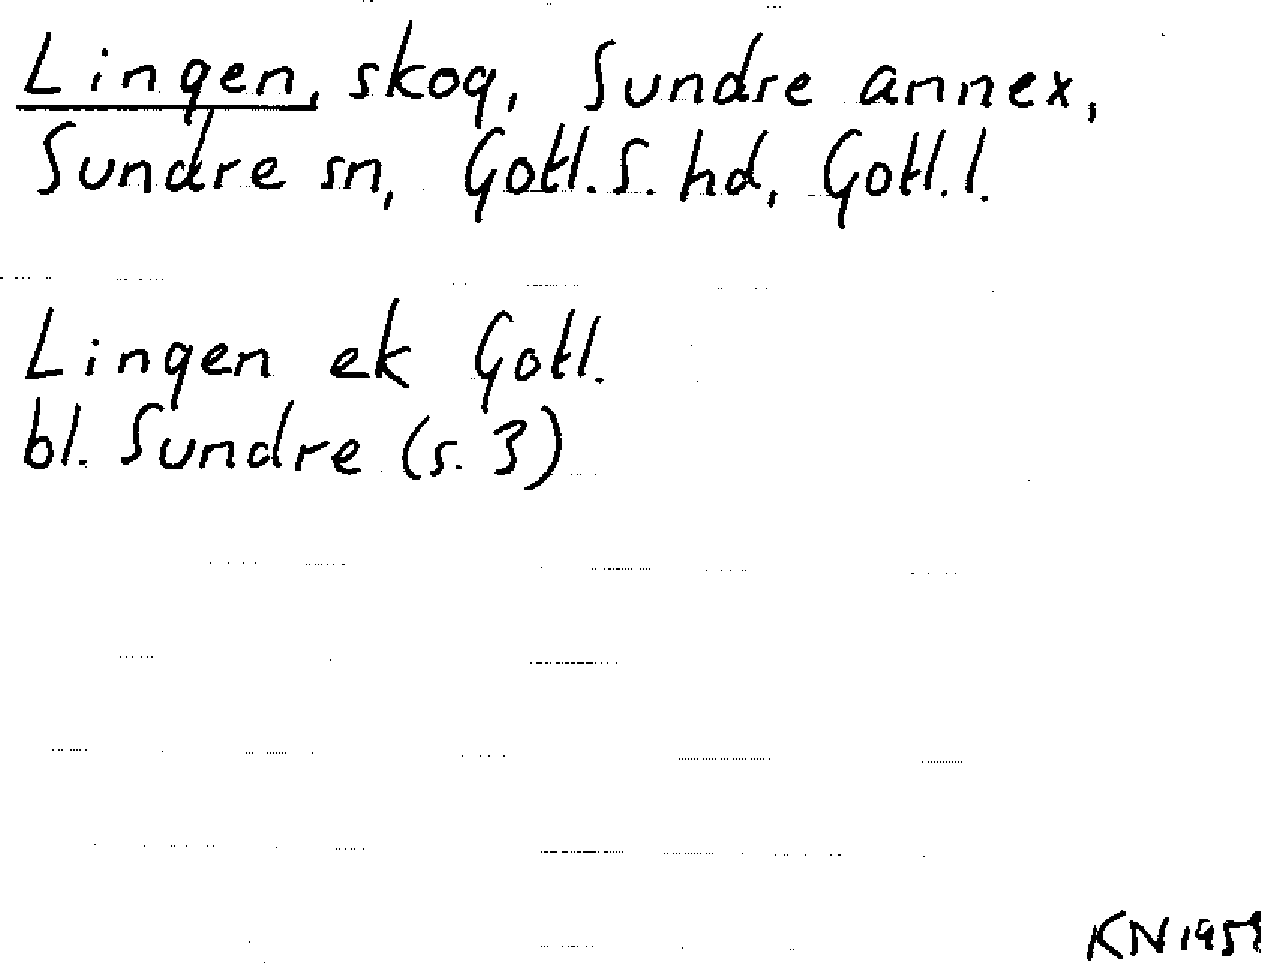 Lingen, skog, Sundre annex,
Sundre sn, Gotl. S. hd, Gotl. l.
Lingen ek Gotl.
bl. Sundre (s. 3)
KN 1958